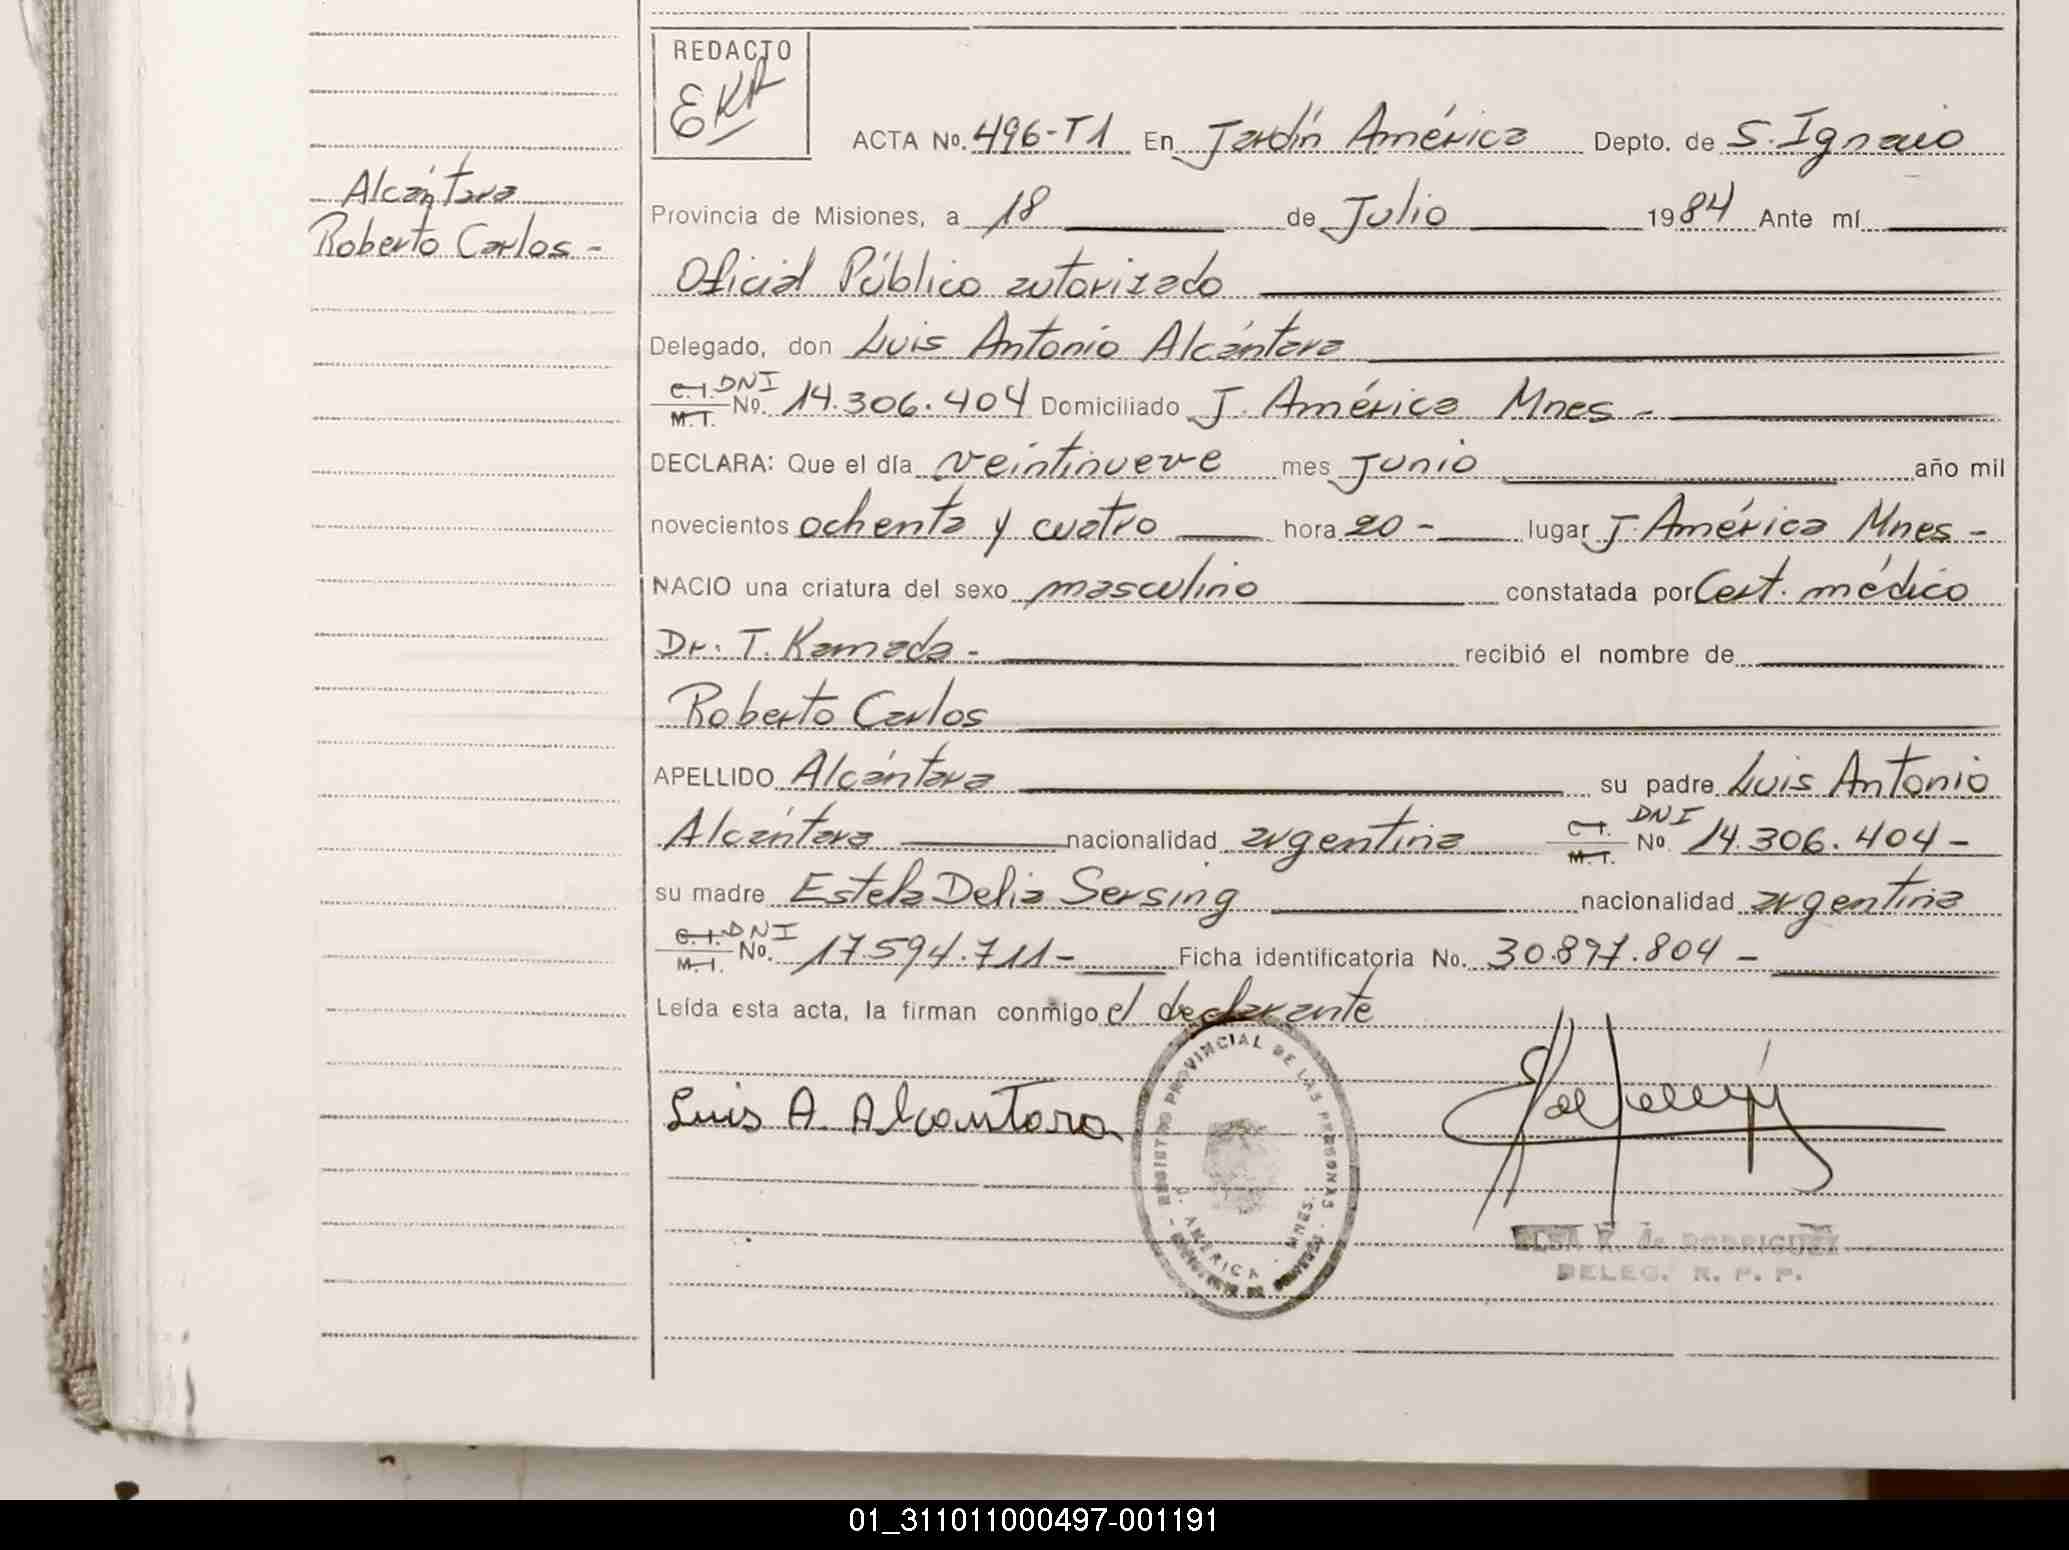 REDACTO
EKR
ACTA No. 496-T1 En Jardín América Depto. de S. Ignacio
Alcántara
Roberto Carlos -
Provincia de Misiones, a 18 de Julio 1984 Ante mí
Oficial Público autorizado
Delegado, don Luis Antonio Alcántara
C.I. DNI
M.I. No. 14.306.404 Domiciliado J. América Mnes -
DECLARA: Que el día veintinueve mes Junio año mil
novecientos ochenta y cuatro hora 20 - lugar J. América Mnes -
NACIO una criatura del sexo masculino constatada por Cert. médico
Dr. T. Kamada - recibió el nombre de
Roberto Carlos
APELLIDO Alcántara su padre Luis Antonio
Alcántara nacionalidad argentina C.I. DNI
M.I. No. 14.306.404 -
su madre Estela Delia Sersing nacionalidad argentina
C.I. DNI
M.I. No. 17.594.711 - Ficha identificatoria No. 30.897.804 -
Leída esta acta, la firman conmigo el declarante
Luis A. Alcantara
REGISTRO PROVINCIAL DE LAS PERSONAS
AMERICA - MNES.
K. de RODRIGUEZ
DELEG. R. P. P.
01_311011000497-001191